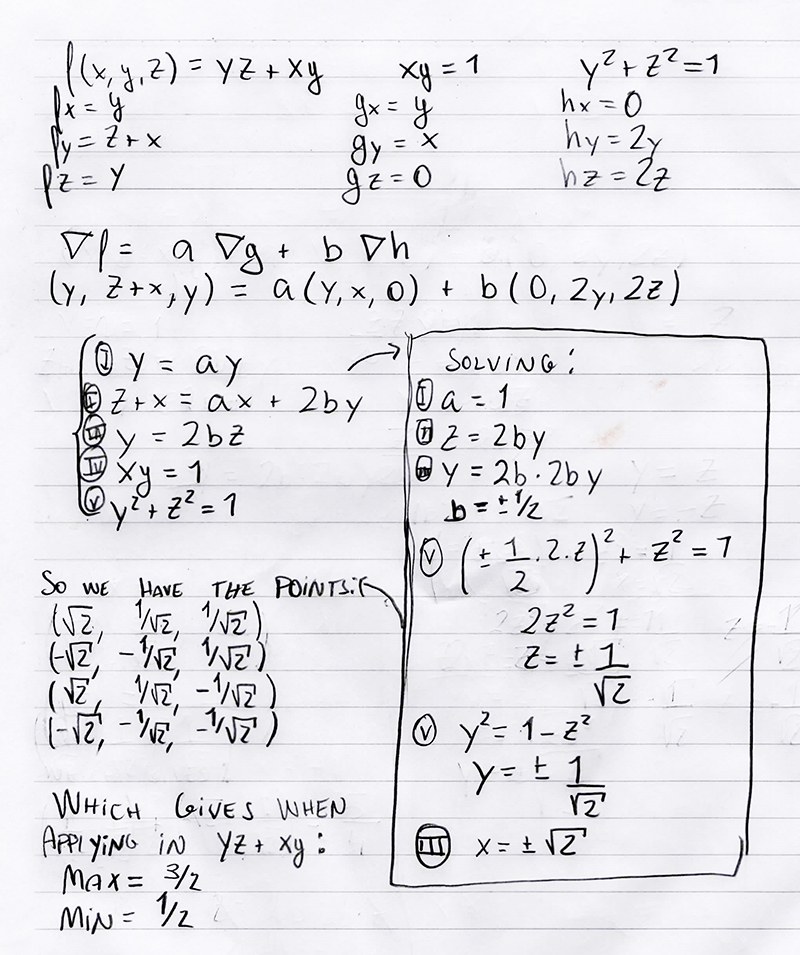 f(x,y,z) = yz + xy xy = 1 y² + z² = 1
fx = y gx = y hx = 0
fy = z + x gy = x hy = 2y
fz = y gz = 0 hz = 2z
∇f = a ∇g + b ∇h
(y, z+x, y) = a(y, x, 0) + b(0, 2y, 2z)
Ⓘ y = ay
Ⓘ z+x = ax + 2by
Ⓘ y = 2bz
Ⓘⓥ xy = 1
Ⓥ y² + z² = 1
SOLVING:
Ⓘ a = 1
II z = 2by
III y = 2b·2by
b = ± 1/2
Ⓥ (± 1/2 · 2 · z)² + z² = 1
2z² = 1
z = ± 1/√2
Ⓥ y² = 1 - z²
y = ± 1/√2
III x = ± √2
SO WE HAVE THE POINTS:
(√2, 1/√2, 1/√2)
(-√2, -1/√2, 1/√2)
(√2, 1/√2, -1/√2)
(-√2, -1/√2, -1/√2)
WHICH GIVES WHEN
APPLYING IN yz + xy:
MAX = 3/2
MIN = 1/2